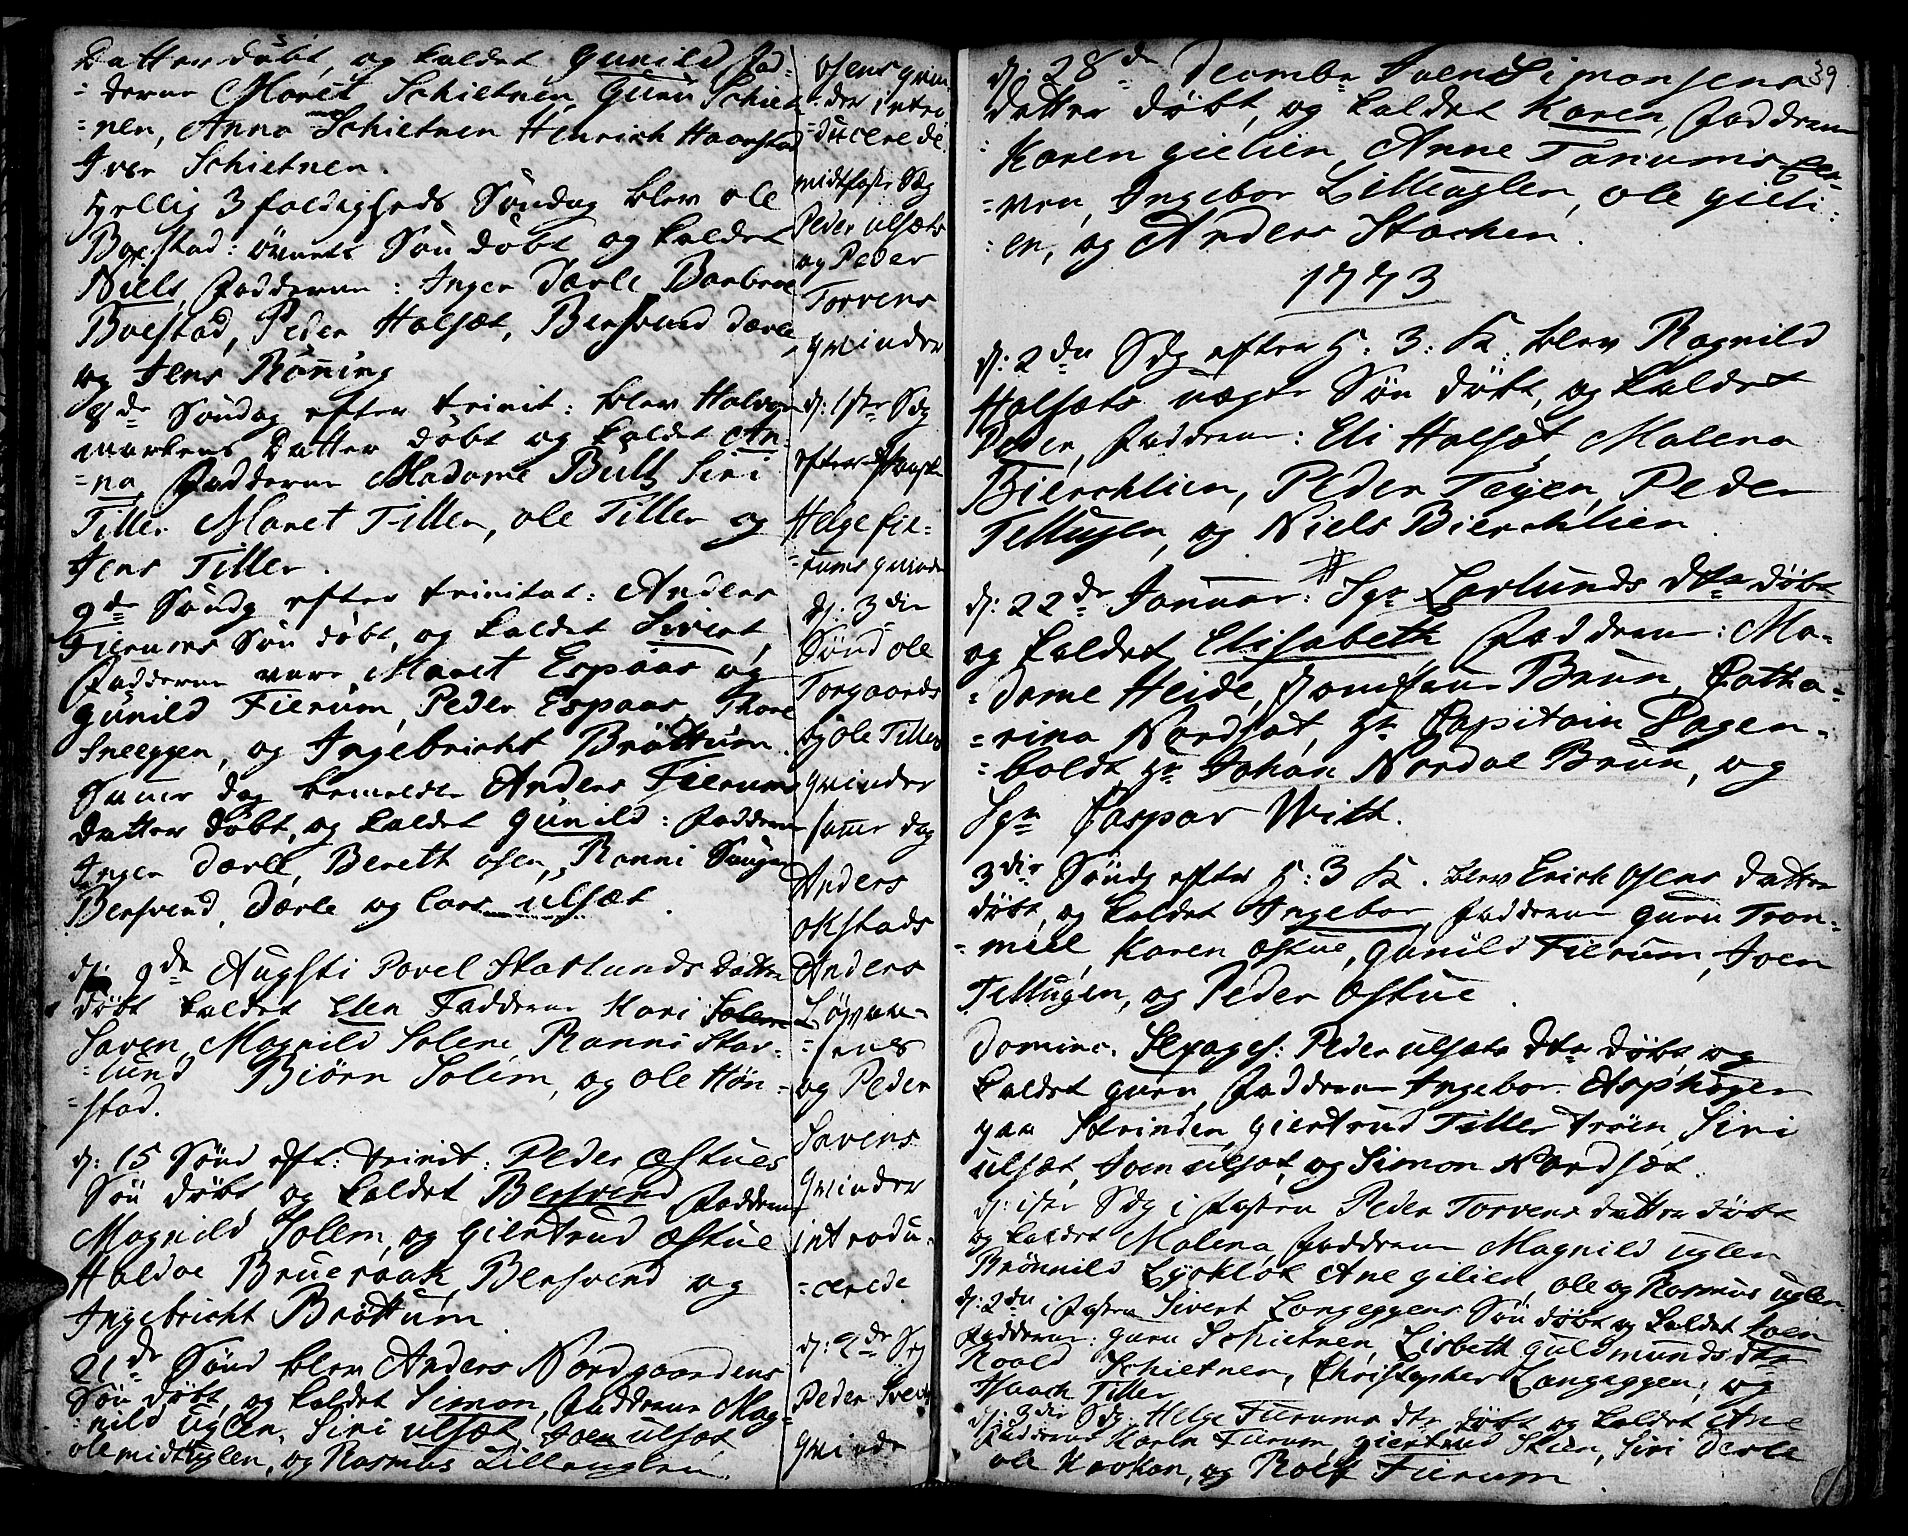 Datter døbt, og kaldet Gunild Fad-
-derne Marit Schietnen, Guru Schiet
-nen, Anna Schietnen Henrich Haarstad
Iver Schietnen.
Hellig 3foldigheds Søndag blev ole
Boxstad: øvrets Søn døbt og kaldet
Niels, Fadderne: Inger Dærle Barbroe
Boestad, Peder Halsæt, Bersvend Dærle
og Jens Rønning
8de Søndag efter trinit: blev Halvor
markens Datter døbt og kaldet An-
-na Fadderne Madame Bull, Siri
Tiller Maret Tiller, ole Tiller og
Jens Tiller.
9de Søndg efter trinitat: Anders
Fierumes Søn døbt, og kaldet Sivert,
Fadderne vare Maret Espaas og
Gunild Fierum, Peder Espaas, Thore
Sneeggen, og Ingebricht Brøttum.
Samme dag bemeldte Anders Fierums
datter døbt, og kaldet Gunild: Faddern
Inger Dærle, Bereth osen, Ranni
Bersvend Dærle og Lars ulsæt.
d: 9de Augsti Povel Starlunds datter
døbt kaldet Elen Fadderne Kari
Saven, Magnild Solem, Ranni Star-
-lund Biørn Solem, og ole Høn-
-stad.
d: 15 Sønd eft: trinit: Peder Østues
Søn døbt og kaldet Bersvend Faddern
Magnild Solem, og Giertrud Østue
Haldoe Brueraak, Bersvend og
Ingebricht Brøttum.
21de Sønd blev Anders Nordgaardens
Søn døbt, og kaldet Simon, Fadderne Mag-
-nild Uglen, Siri ulsæt, Joen ulsæt,
ole midtuglen, og Rasmus Lilleuglen.
osens qvin
-der intro
-ducerede.
midtfaste Sdg
Peder ulsæts
og Peder
Torvens
qvinder
d: 1ste Sdg
efter Paaske
Helge Fie-
-rums qvinde
d: 3die
Sønd ole
Torgaards
og ole Tillers
qvinder
samme dag
Anders
okstads
Anders
-senes
og Peder
Savens
qvinder
introdu-
-cerede
d: 2de Sdg
Peder
qvinde
39
d: 28de Decembr Joen Simonsens
datter døbt, og kaldet Karen, Fadderne
Karen gielien, Anne Tanums
-ven, Ingebor Lilleuglen, ole gieli-
-en, og Anders Stachen.
1773
d: 2den Sdg efter H: 3: K: blev Ragnild
Halsæts uægte Søn døbt, og kaldet
Peder, Fadderne: Eli Halsæt, Malena
Bierchlien, Peder Teyen, Peder
Tellugen, og Niels Bierchlien
d: 22de Januar: Sgr Lorlunds dtr døbt
og kaldet Elisabeth Fadderne: Ma-
-dame Heide, Jomfrue Brun, Catha-
-rina Nordsæt, Hr Capitain Dagen-
-boldt, Hr Johan Nordal Brun, og
Sgr Caspar Witt.
3die Søndg efter H: 3 K. blev Erich osens datter
døbt, og kaldet Ingebor, Fadderne guru Tron-
-miel Karen østue, gunild Fierum, Joen
Tellugen, og Peder østue.
Dominc. Sexages: Peder ulsæts dtr døbt, og
kaldet guru, Fadderne Ingebor Asphøgen
paa Strinden, giertrud Tiller trøen, Siri
ulsæt, Joen ulsæt, og Simon Nordsæt.
d: 1ste Sdg i Fasten Peder Torvens datter døbt
og kaldet Malena Fadderne Magnild uglen
Brønnild Lysklet Ane gilien, ole og Rasmus uglen
d: 2den i Fasten Sivert Langeggens Søn døbt og kaldet Joen
Fadderne: guru Schietnen, Lisbeth guldmunds dtr
Roald Schietnen, Christopher Langeggen, og
Haach Tiller
d: 3die Sdg: Helge Fierums dtr døbt og kaldet Ane
Fadderne Karen Fierum, giertrud Skien, Siri Dærle
ole Krokan, og Rolf Fierum